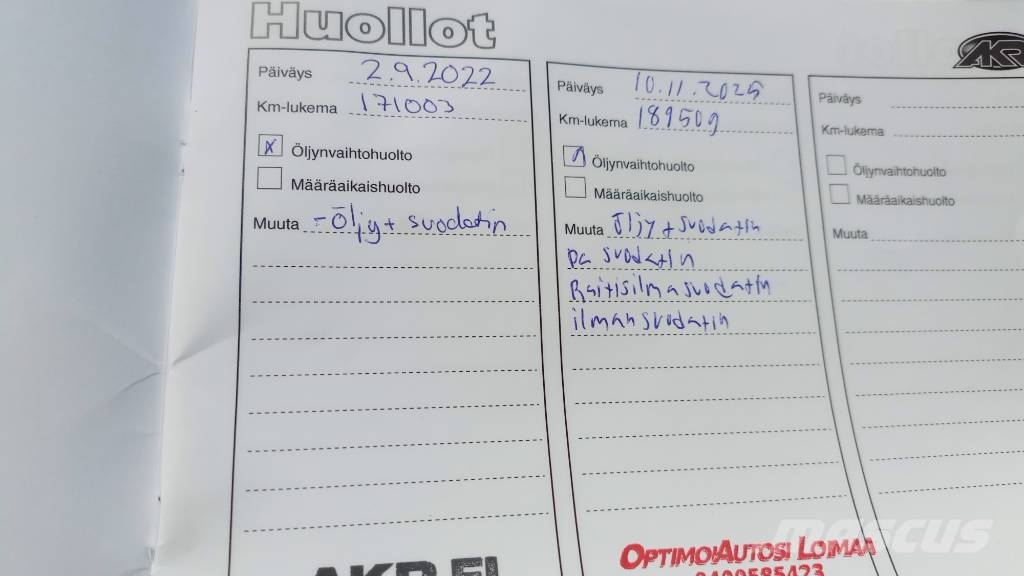 Huollot
AKR
Päiväys 2.9.2022
Km-lukema 171003
x Öljynvaihtohuolto
Määräaikaishuolto
Muuta - Öljy + suodatin
AKR.FI
Päiväys 10.11.2025
Km-lukema 189509
Öljynvaihtohuolto
Määräaikaishuolto
Muuta Öljy + suodatin
pa suodatin
Raitisilmasuodatin
ilmansuodatin
OPTIMOIAUTOSI LOIMAA
0400585423
Päiväys
Km-lukema
Öljynvaihtohuolto
Määräaikaishuolto
Muuta
mascus